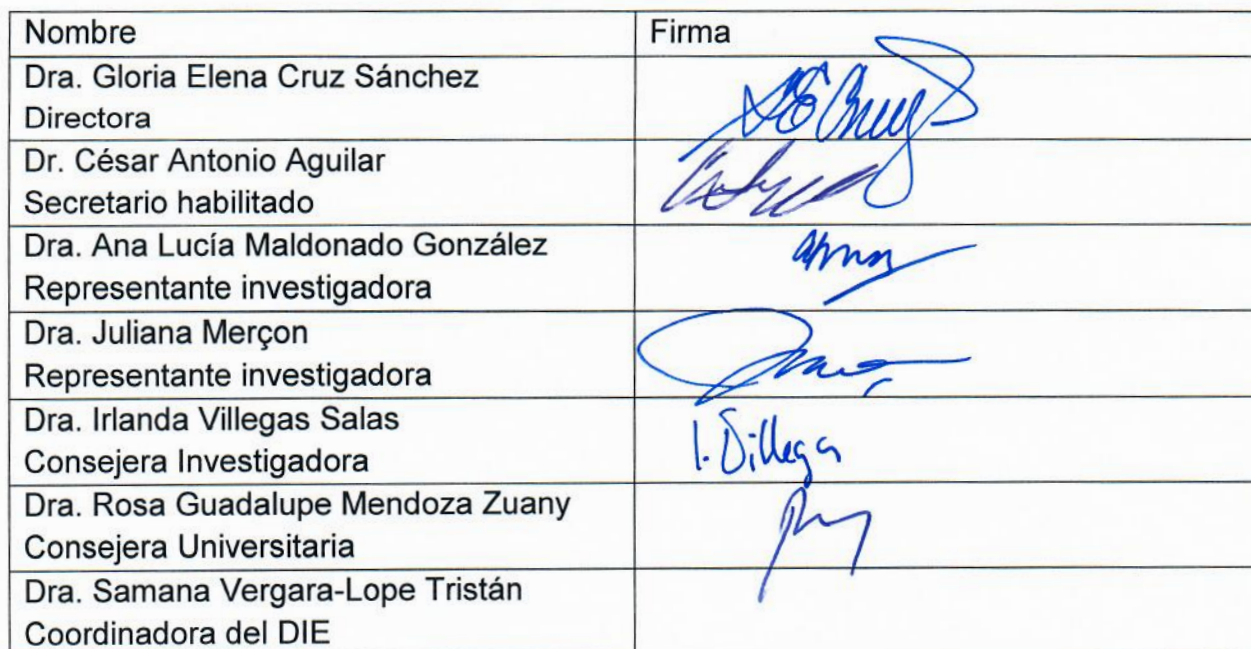 Nombre
Firma
Dra. Gloria Elena Cruz Sánchez
Directora
Dr. César Antonio Aguilar
Secretario habilitado
Dra. Ana Lucía Maldonado González
Representante investigadora
Dra. Juliana Merçon
Representante investigadora
Dra. Irlanda Villegas Salas
Consejera Investigadora
I. Villegas
Dra. Rosa Guadalupe Mendoza Zuany
Consejera Universitaria
Dra. Samana Vergara-Lope Tristán
Coordinadora del DIE